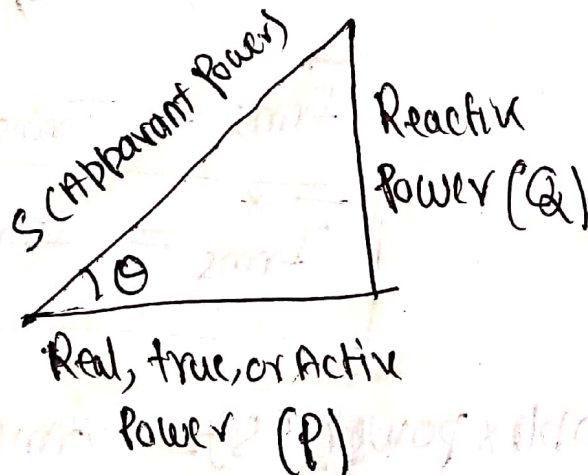 S (Apparant Power)
Reactive
Power (Q)
θ
Real, true, or Active
Power (P)